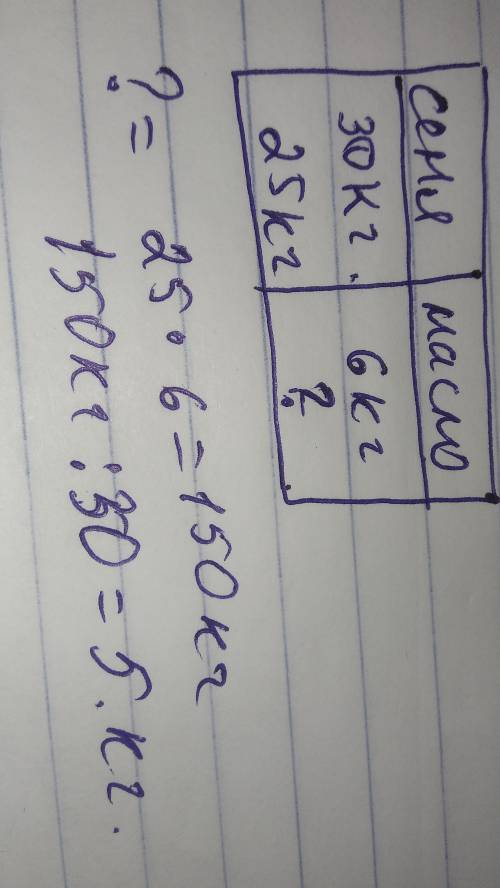 семя масло
30кг. 6кг
25кг ?
? = 25 • 6 = 150кг
150кг : 30 = 5.кг.